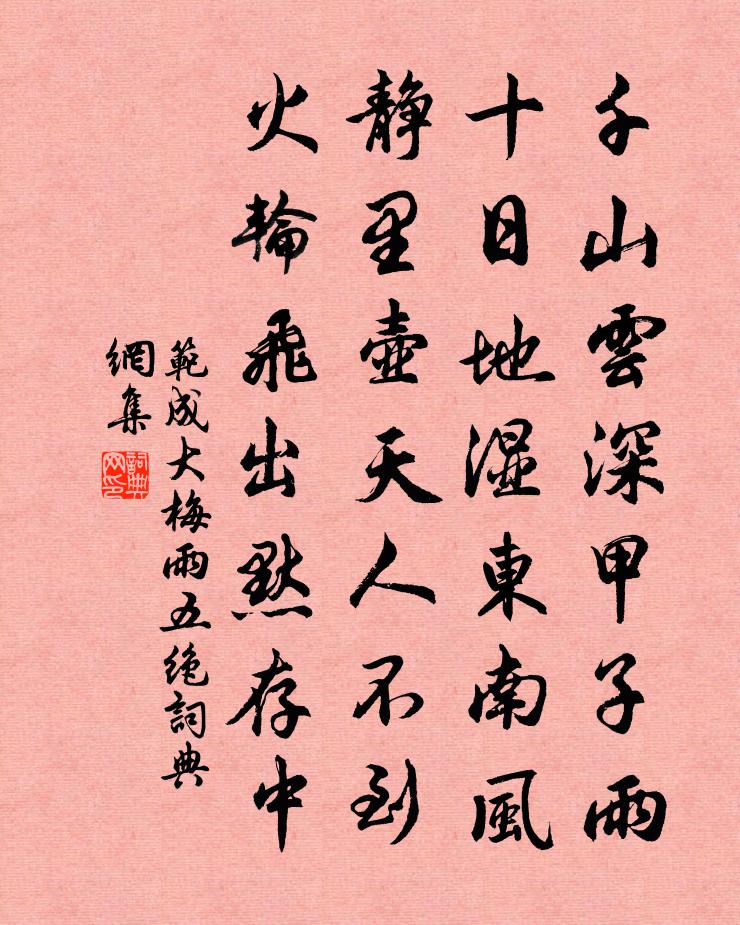 千山雲深甲子雨
十日地湿東南風
静里壺天人不到
火輪飛出默存中
範成大梅雨五绝詞典
網集
詞典
网印